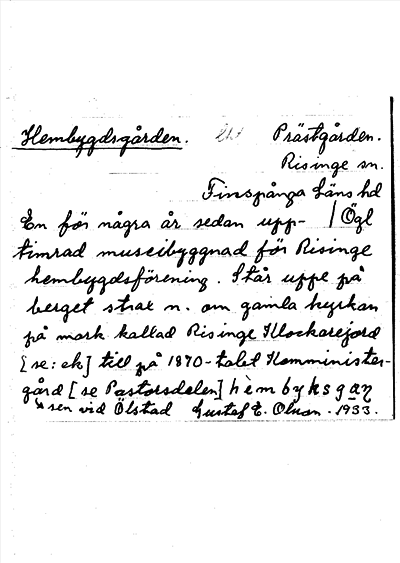 Hembygdsgården. Prästgården.
Risinge sn.
Finspånga läns hd
En för några år sedan upp- / Ögl
timrad museibyggnad för Risinge
hembygdsförening. Står uppe på
berget strax n. om gamla kyrkan
på mark kallad Risinge Klockarejord
[se: ek] till på 1870-talet Komminister-
gård [se Pastorsdelen] hèmbyksgaṇ
* sen vid Ölstad Gustaf E. Olson. 1933.